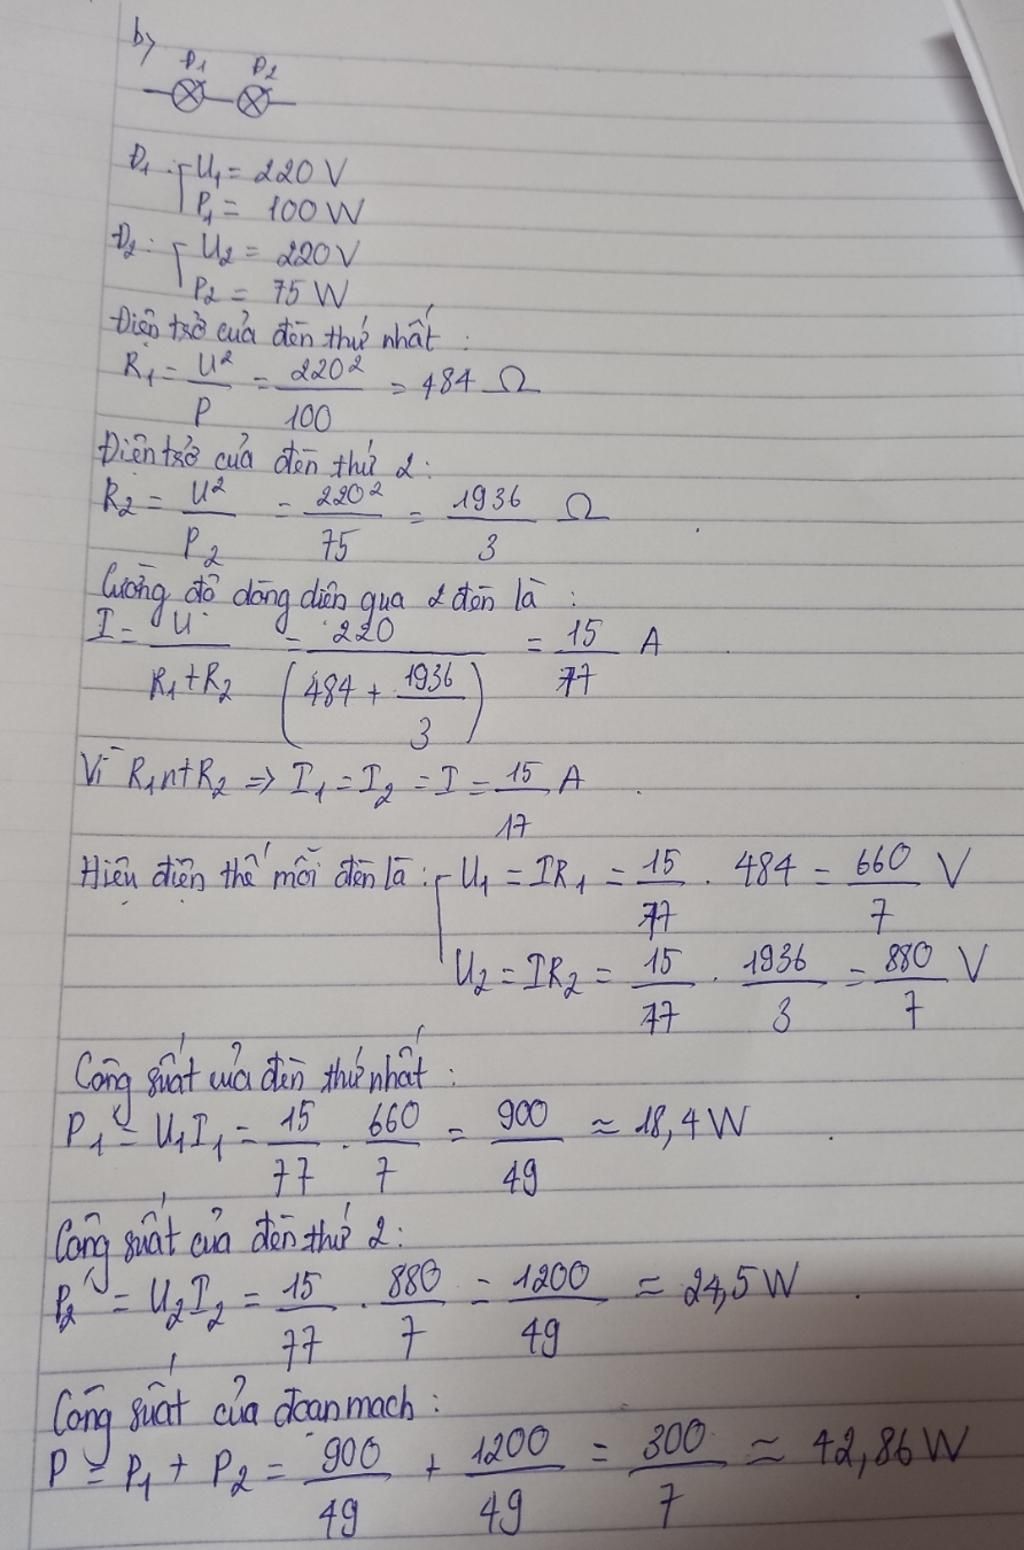 b)
Đ1 Đ2
Đ1: U1 = 220 V
P1 = 100 W
Đ2: U2 = 220 V
P2 = 75 W
Điện trở của đèn thứ nhất:
R1 = U²/P = 220²/100 = 484 Ω
Điện trở của đèn thứ 2:
R2 = U²/P2 = 220²/75 = 1936/3 Ω
Cường độ dòng điện qua 2 đèn là:
I = U/(R1+R2) = 220/(484 + 1936/3) = 15/77 A
Vì R1 nt R2 => I1 = I2 = I = 15/17 A
Hiệu điện thế mỗi đèn là: U1 = IR1 = 15/77 . 484 = 660/7 V
U2 = IR2 = 15/77 . 1936/3 = 880/7 V
Công suất của đèn thứ nhất:
P1' = U1I1 = 15/77 . 660/7 = 900/49 ≈ 18,4 W
Công suất của đèn thứ 2:
P2' = U2I2 = 15/77 . 880/7 = 1200/49 ≈ 24,5 W
Công suất của đoạn mạch:
P = P1 + P2 = 900/49 + 1200/49 = 300/7 ≈ 42,86 W